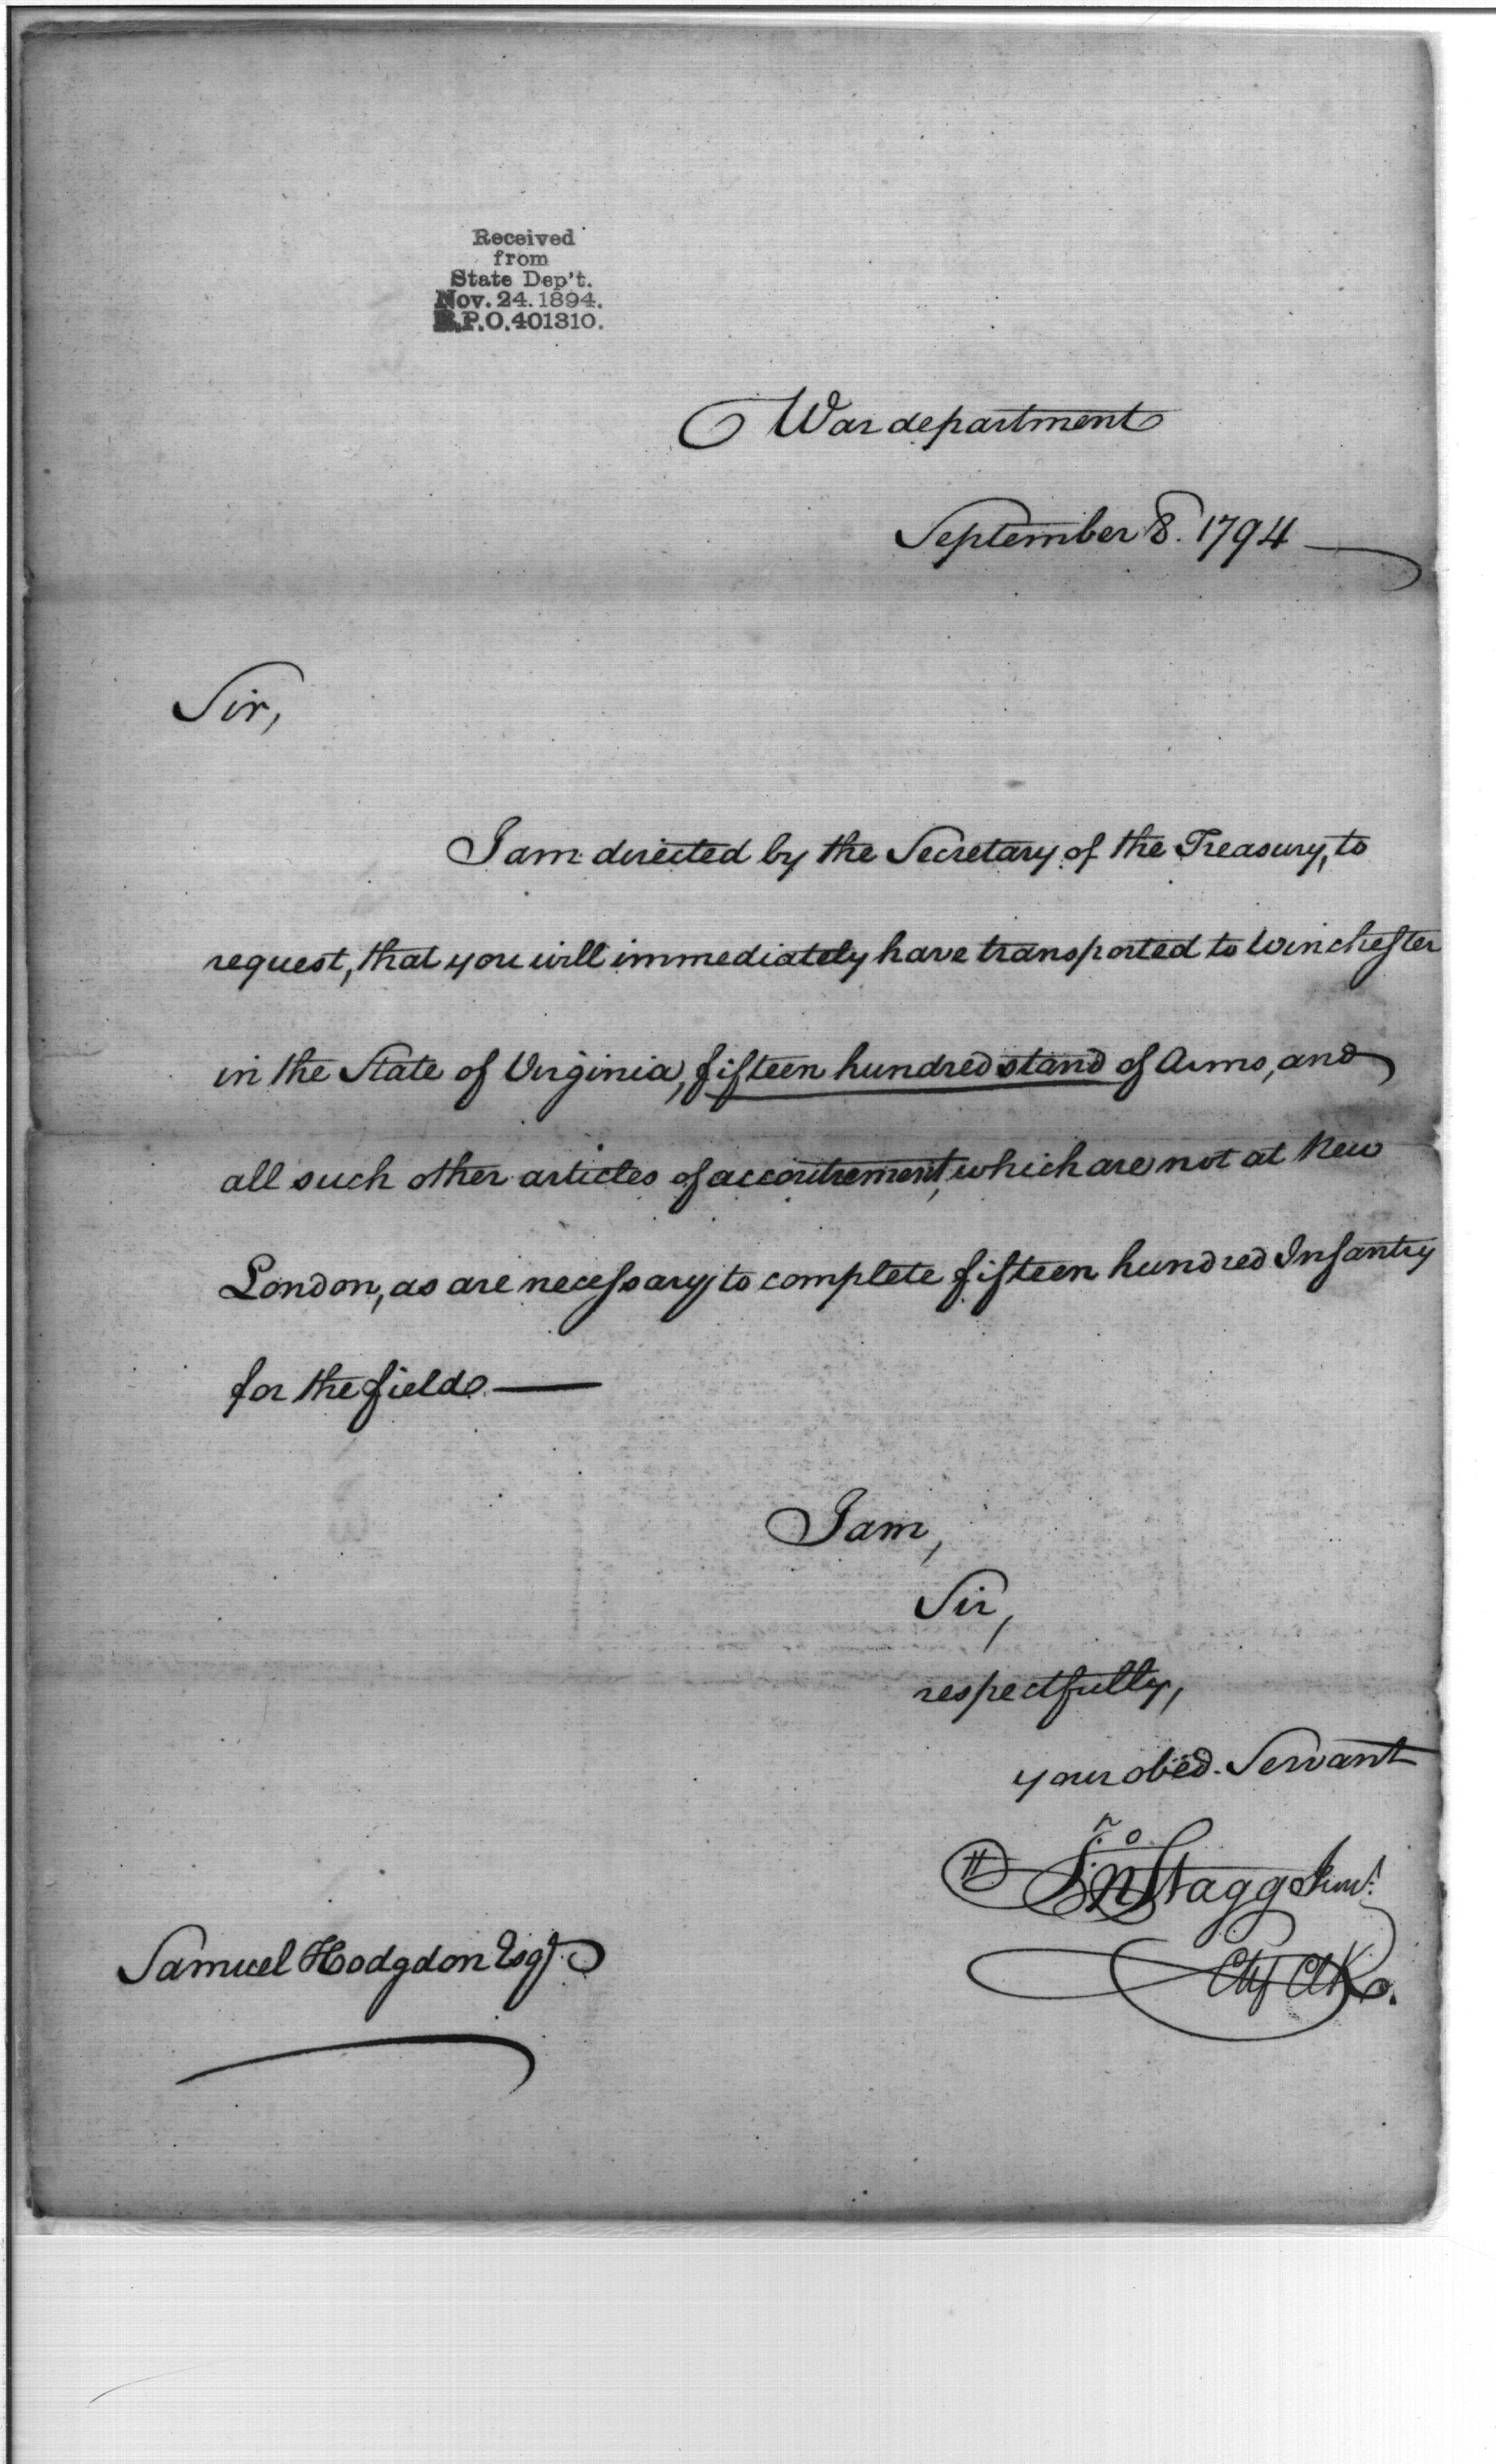 Received
from
State Dep't.
Nov. 24. 1894.
R.P.O. 401310.
War department
September 8. 1794
Sir,
I am directed by the Secretary of the Treasury, to
request, that you will immediately have transported to Winchester
in the State of Virginia, fifteen hundred stand of Arms, and
all such other articles of accoutrement, which are not at New
London, as are necessary to complete fifteen hundred Infantry
for the field.
I am,
Sir,
respectfully,
your obed. Servant
Jno Stagg Junr.
Chf Clk.
Samuel Hodgdon Esqr.